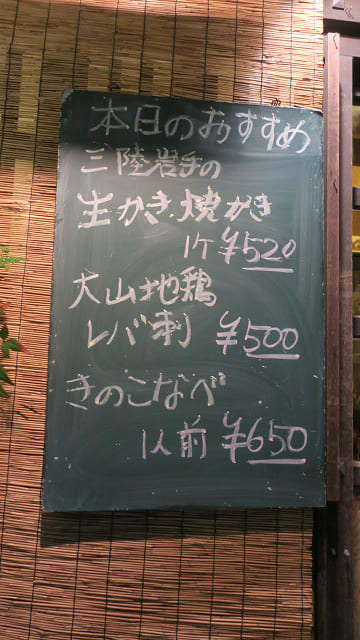 本日のおすすめ
三陸岩手の
生かき、焼がき
1ケ ¥520
大山地鶏
レバ刺 ¥500
きのこなべ
1人前 ¥650